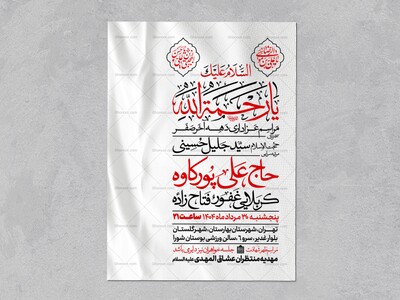 السلام علیک
یا رحمة الله
مراسم عزاداری دهه آخر صفر
حجت الاسلام سید جلیل حسینی
حاج علی پورکاوه
کربلایی غفور فتاح زاده
پنجشنبه ۳۰ مردادماه ۱۴۰۴ ساعت ۲۱
تهران، شهرستان بهارستان، شهر گلستان
بلوار غدیر، سرو ۶، سالن ورزشی بوستان شورا
جلسه خواهران نیز دایر می باشد
مهدیه منتظران عشاق المهدی علیه السلام